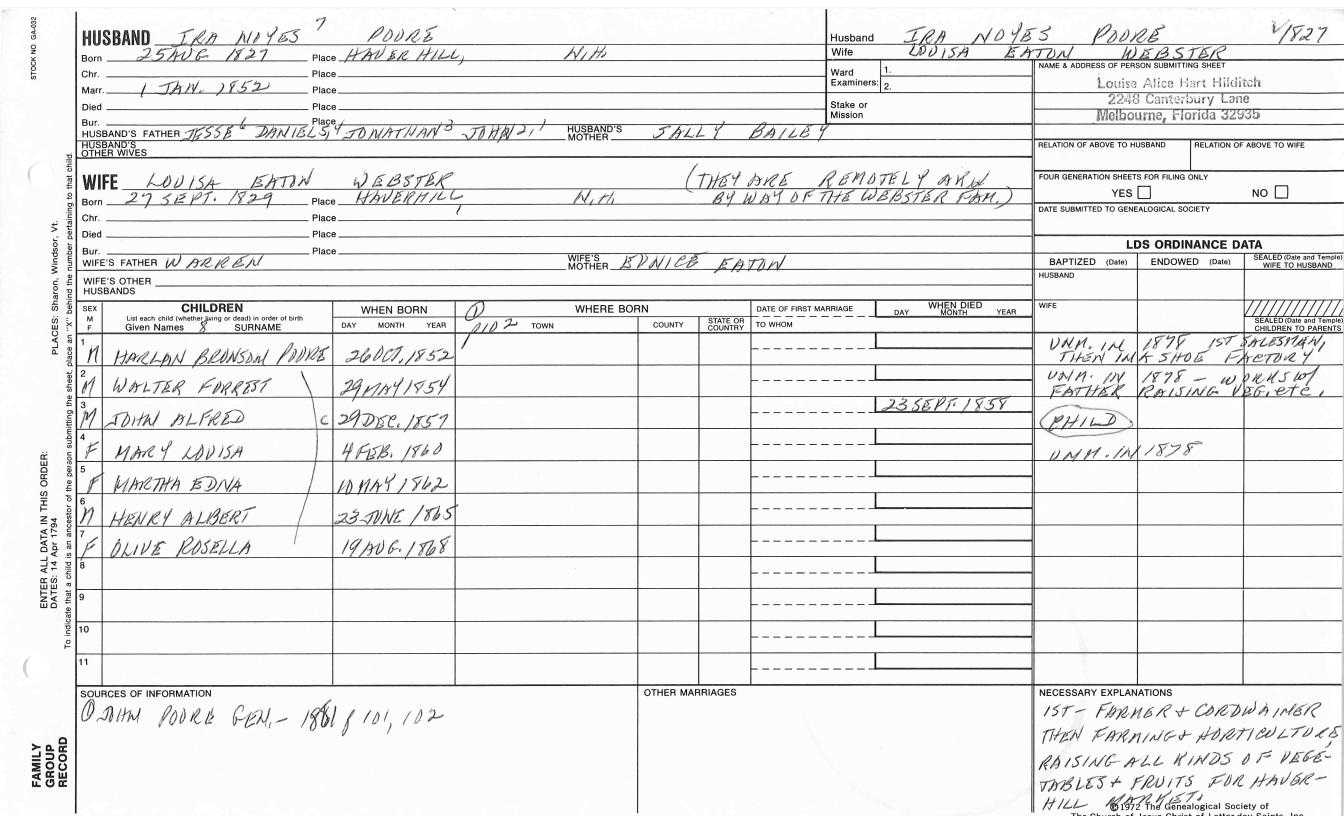 STOCK NO GA-032
ENTER ALL DATA IN THIS ORDER:
DATES: 14 Apr 1794
PLACES: Sharon, Windsor, Vt.
To indicate that a child is an ancestor of the person submitting the sheet, place an "X" behind the number pertaining to that child.
FAMILY GROUP RECORD
HUSBAND IRA NOYES 7 POORE
Born 25 AUG 1827 Place HAVERHILL, N.H.
Chr. Place
Marr. 1 JAN. 1852 Place
Died Place
Bur. Place
HUSBAND'S FATHER JESSE 6 DANIEL 5,4 JONATHAN 3 JOHN 2,1 HUSBAND'S MOTHER SALLY BAILEY
HUSBAND'S OTHER WIVES
WIFE LOUISA EATON WEBSTER (THEY ARE REMOTELY
Born 27 SEPT. 1829 Place HAVERHILL, N.H. BY WAY OF THE WEBSTER FAM.)
Chr. Place
Died Place
Bur. Place
WIFE'S FATHER WARREN WIFE'S MOTHER EUNICE EATON
WIFE'S OTHER HUSBANDS
Husband IRA NOYES POORE 1827
Wife LOUISA EATON WEBSTER
Ward Examiners: 1.
2.
Stake or Mission
NAME & ADDRESS OF PERSON SUBMITTING SHEET
Louise Alice Hart Hilditch
2248 Canterbury Lane
Melbourne, Florida 32935
RELATION OF ABOVE TO HUSBAND RELATION OF ABOVE TO WIFE
FOUR GENERATION SHEETS FOR FILING ONLY
YES NO
DATE SUBMITTED TO GENEALOGICAL SOCIETY
LDS ORDINANCE DATA
BAPTIZED (Date) ENDOWED (Date) SEALED (Date and Temple) WIFE TO HUSBAND
HUSBAND
WIFE
SEALED (Date and Temple) CHILDREN TO PARENTS
SEX M F
CHILDREN
List each child (whether living or dead) in order of birth
Given Names 8 SURNAME
WHEN BORN
DAY MONTH YEAR
WHERE BORN
TOWN COUNTY STATE OR COUNTRY
DATE OF FIRST MARRIAGE
TO WHOM
WHEN DIED
DAY MONTH YEAR
1 M HARLAN BRONSOM POORE 26 OCT. 1852 UNM. IN 1878 1ST SALESMAN,
THEN IN A SHOE FACTORY
2 M WALTER FORREST 29 MAY 1854 UNM. IN 1878 - WORKS W/
FATHER RAISING VEG. etc.
3 M JOHN ALFRED C 29 DEC. 1857 23 SEPT. 1858
4 F MARY LOUISA 4 FEB. 1860 UNM. IN 1878
5 F MARTHA EDNA 10 MAY 1862
6 M HENRY ALBERT 23 JUNE 1865
7 F OLIVE ROSELLA 19 AUG. 1868
8
9
10
11
SOURCES OF INFORMATION
① JOHN POORE GEN. - 1881 p 101, 102
OTHER MARRIAGES
NECESSARY EXPLANATIONS
1ST - FARMER & CORDWAINER
THEN FARMING & HORTICULTURE
RAISING ALL KINDS OF VEGE-
TABLES & FRUITS FOR HAVER-
HILL MARKET.
©1972 The Genealogical Society of
The Church of Jesus Christ of Latter-day Saints, Inc.